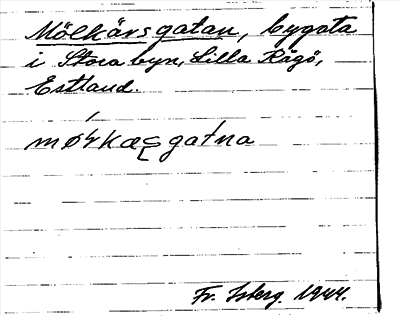 Mölkärsgatan, bygata
i Stora byn, Lilla Rågö,
Estland.
Fr. Isberg 1944.